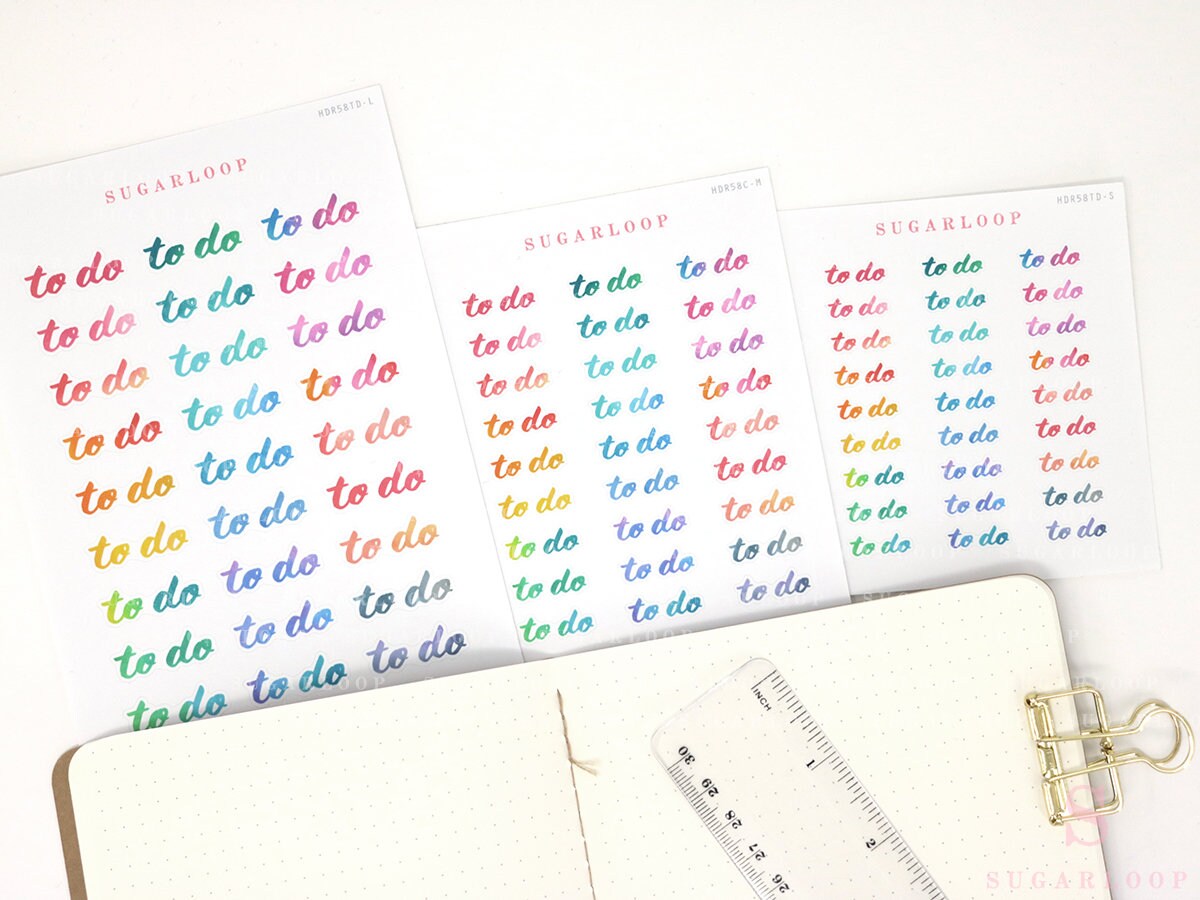 HDR58TD-L
SUGARLOOP
to do to do to do
to do to do to do
to do to do to do
to do to do to do
to do to do to do
to do to do to do
to do to do to do
to do to do to do
to do to do to do
HDR58C-M
SUGARLOOP
to do to do to do
to do to do to do
to do to do to do
to do to do to do
to do to do to do
to do to do to do
to do to do to do
to do to do to do
to do to do to do
HDR58TD-S
SUGARLOOP
to do to do to do
to do to do to do
to do to do to do
to do to do to do
to do to do to do
to do to do to do
to do to do to do
to do to do to do
to do to do to do
INCH
1
2
30
29
28
27
26
S
SUGARLOOP